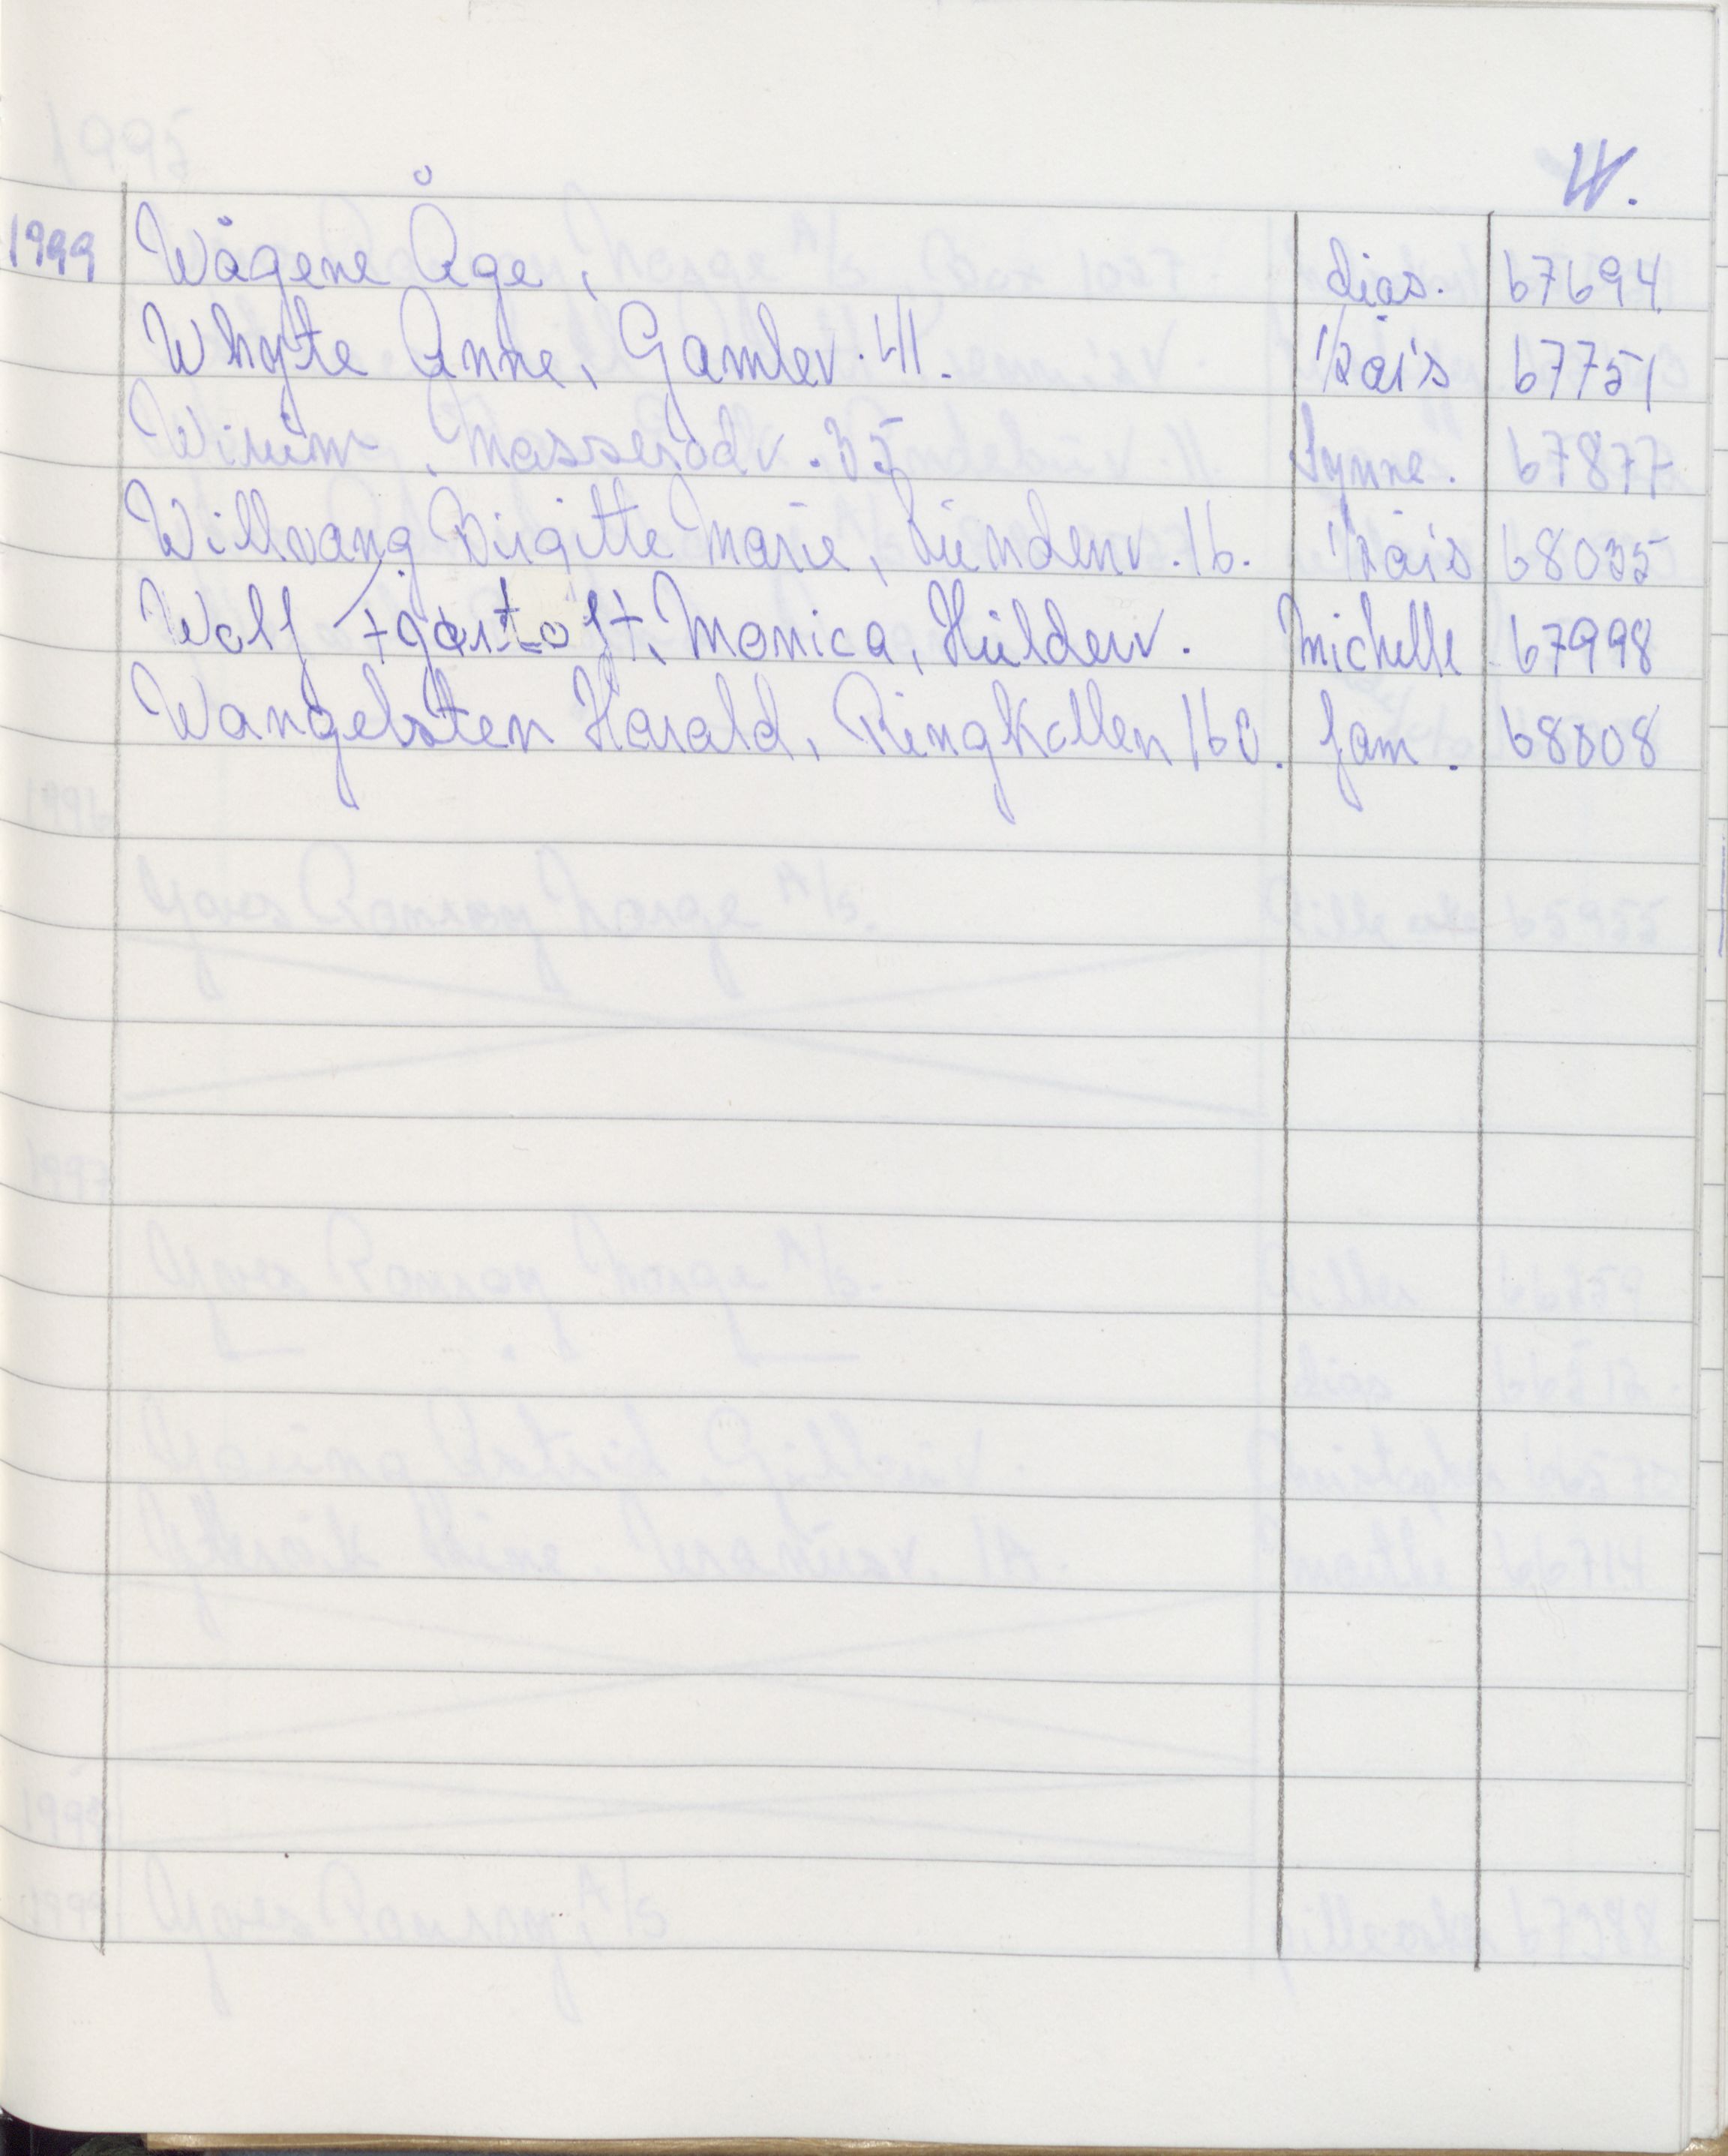 W.
1999 Wågene Åge, dias. 67694
Whyte Anne, Gamlev. 41. 1/2 års 67751
Wirum, Masserødv. 35 Synne. 67877
Willvang Birgitte Marie, Lundenv. 16. 1/2 års 68035
Wolf Monica, Hulderv. Michelle 67998
Wangelsten Harald, Ringkollen 160. fam. 68008